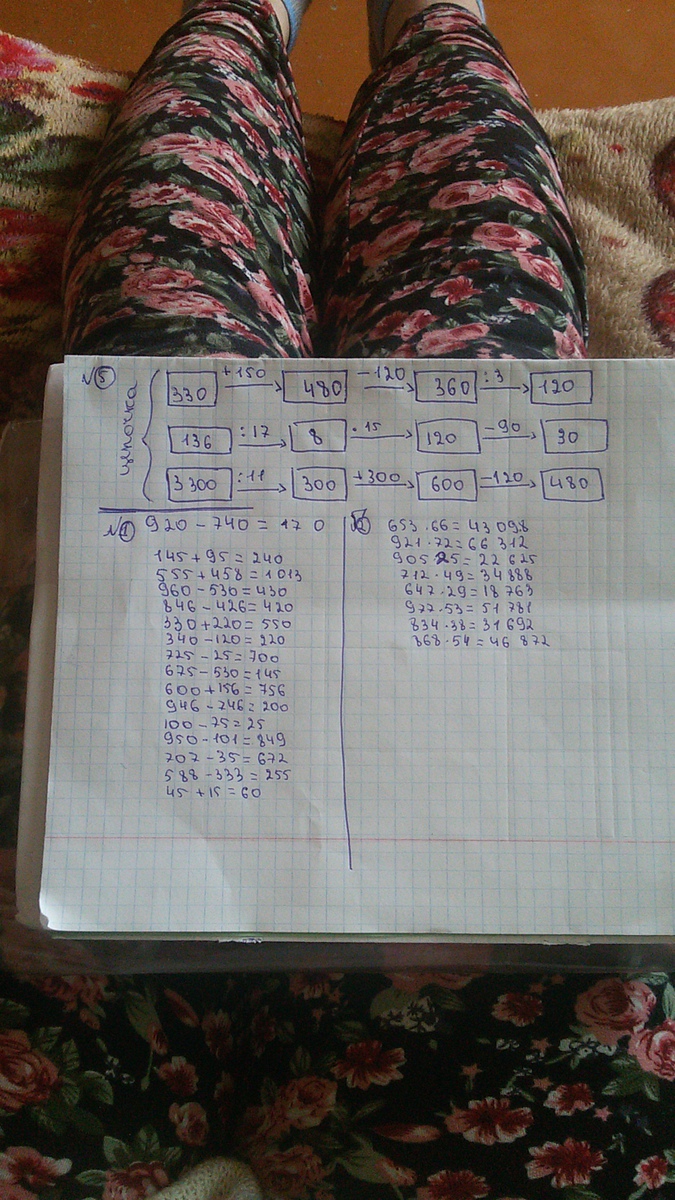 №5 цепочка
330 +150 480 -120 360 :3 120
136 :17 8 ·15 120 -90 30
3300 :11 300 +300 600 -120 480
№1 920-740=170
145+95=240
555+458=1013
960-530=430
846-426=420
330+220=550
340-120=220
725-25=700
675-530=145
600+156=756
946-746=200
100-75=25
950-101=849
707-35=672
588-333=255
45+15=60
653·66=43098
921·72=66312
905 25=22625
712·49=34888
647·29=18763
977·53=51781
834·38=31692
868·54=46872